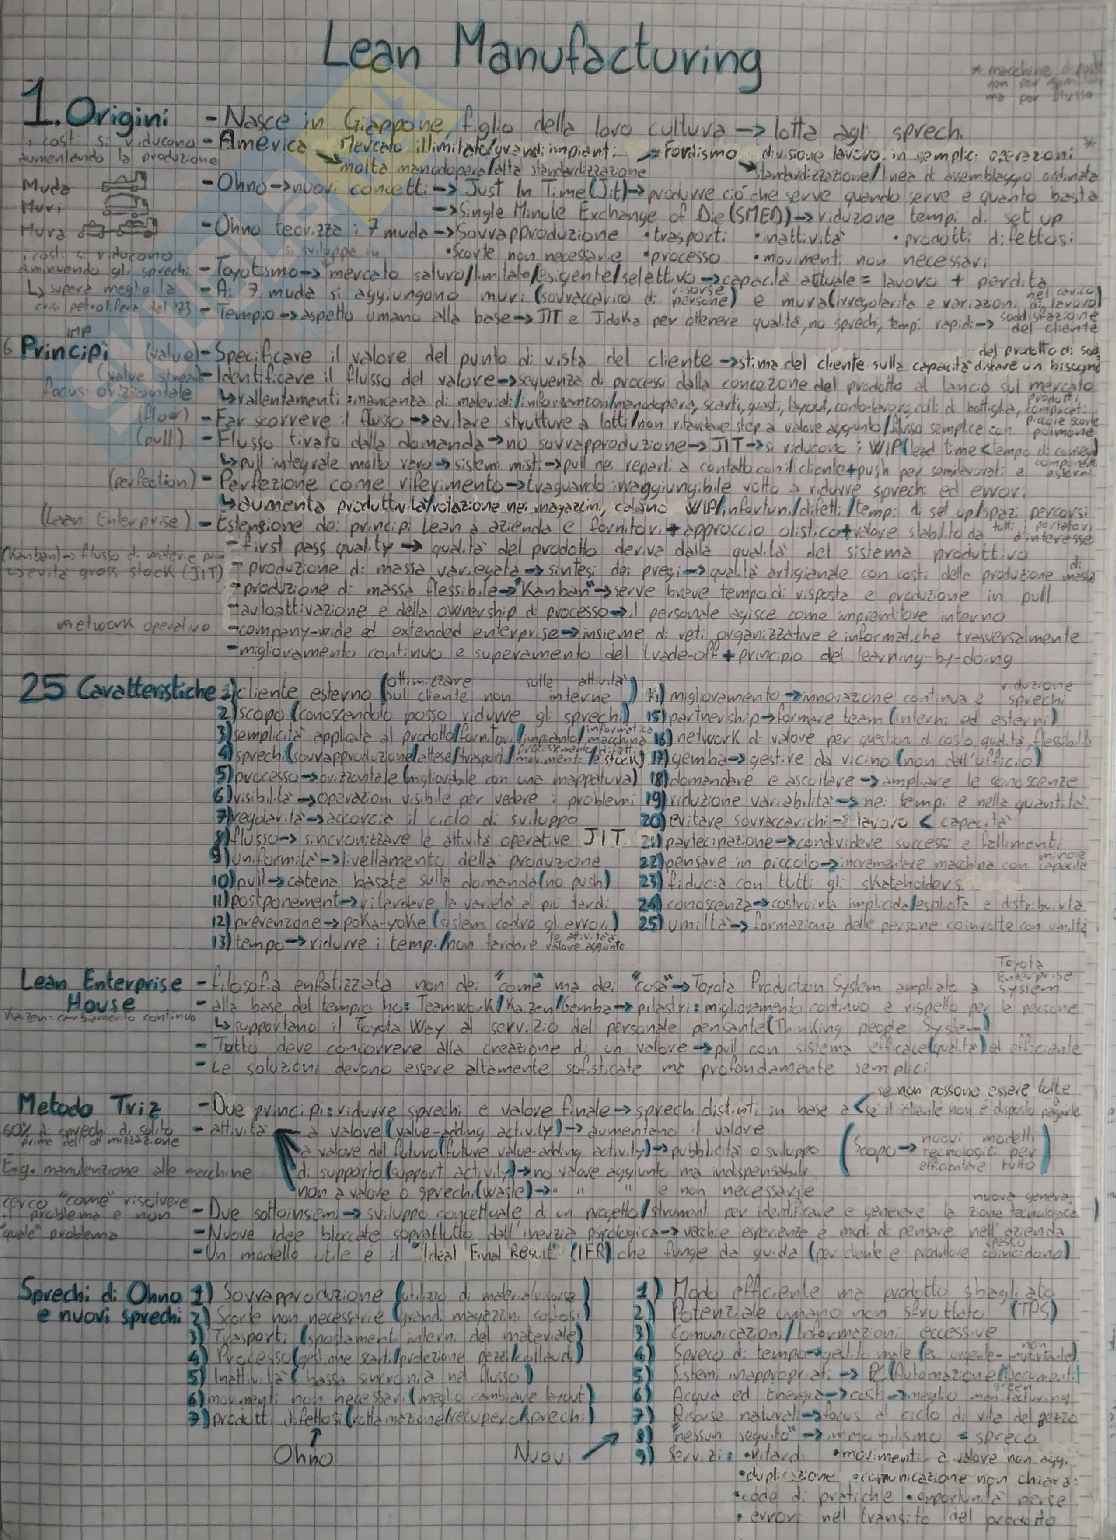 Lean Manufacturing
* macchine
non per
ma per flusso
1. Origini - Nasce in Giappone, figlio della loro cultura → lotta agli sprechi
i costi si riducono - America → Mercato illimitato/grandi impianti → Fordismo → divisione lavoro in semplici operazioni *
aumentando la produzione molta manodopera/alta standardizzazione standardizzazione/linea d'assemblaggio ordinata
Muda - Ohno → nuovi concetti → Just In Time (Jit) → produrre ciò che serve quando serve e quanto basta
Muri → Single Minute Exchange of Die (SMED) → riduzione tempi di set up
Mura - Ohno teorizza i 7 muda → Sovrapproduzione • trasporti • inattività • prodotti difettosi
i costi si riducono si sviluppa in • Scorte non necessarie • processo • movimenti non necessari
diminuendo gli sprechi - Toyotismo → mercato saturo/limitato/esigente/selettivo → capacità attuale = lavoro + perdita
↳ supera meglio la - Ai 7 muda si aggiungono muri (sovraccarico di risorse/persone) e mura (irregolarità e variazioni nel carico di lavoro)
crisi petrolifera del '73 - Tempio → aspetto umano alla base → JIT e Jidoka per ottenere qualità, no sprechi, tempi rapidi → soddisfazione del cliente
6 Principi (value) - Specificare il valore del punto di vista del cliente → stima del cliente sulla capacità del prodotto di sodd di un bisogno
(value stream) - Identificare il flusso del valore → sequenza di processi dalla concezione del prodotto al lancio sul mercato
focus orizzontale ↳ rallentamenti: mancanza di materiali/informazioni/manodopera, scarti, guasti, layout, conto-lavoro, colli di bottiglia,
(flow) - Far scorrere il flusso → evitare strutture a lotti/non ritardare step a valore aggiunto/flusso semplice con piccole scorte polmone
(pull) - Flusso tirato dalla domanda → no sovrapproduzione → JIT → si riducono i WIP (lead time < tempo di consegna)
↳ pull integrale molto raro → sistemi misti → pull nei reparti a contatto con il cliente + push per semilavorati e componenti esterni
(perfection) - Perfezione come riferimento → traguardo irraggiungibile volto a ridurre sprechi ed errori
↳ aumenta produttività/rotazione nei magazzini, calano WIP/infortuni/difetti/tempi di set up/spazi percorsi
(Lean Enterprise) - Estensione dei principi Lean a azienda e fornitori + approccio olistico + valore stabilito da tutti i portatori d'interesse
(Kanban) → flusso di materie - first pass quality → qualità del prodotto deriva dalla qualità del sistema produttivo
gross stock (JIT) - produzione di massa variegata → sintesi dei pregi → qualità artigianale con costi della produzione di massa
- produzione di massa flessibile → "Kanban" → serve breve tempo di risposta e produzione in pull
- autoattivazione e della ownership di processo → il personale agisce come imprenditore interno
network operativo - company-wide ed extended enterprise → insieme di reti organizzative e informatiche trasversalmente
- miglioramento continuo e superamento del trade-off + principio del learning-by-doing
25 Caratteristiche 1) cliente esterno (ottimizzare sul cliente non sulle attività interne)
2) scopo (conoscendolo posso ridurre gli sprechi)
3) semplicità applicata al prodotto/fornitori/impianto/informatica/macchina
4) sprechi (sovrapproduzione/attese/trasporti/movimenti/e stock)
5) processo → orizzontale (migliorabile con una mappatura)
6) visibilità → operazioni visibile per vedere i problemi
7) regolarità → accorcia il ciclo di sviluppo
8) flusso → sincronizzare le attività operative JIT
9) uniformità → livellamento della produzione
10) pull → catena basata sulla domanda (no push)
11) postponement → ritardare la varietà a più tardi
12) prevenzione → poka-yoke (sistemi contro gli errori)
13) tempo → ridurre i tempi/non tardare le attività valore aggiunto
14) miglioramento → innovazione continua e riduzione sprechi
15) partnership → formare team (interni ed esterni)
16) network di valore per question di costo qualità flessibilità
17) gemba → gestire da vicino (non dall'ufficio)
18) domandare e ascoltare → ampliare le conoscenze
19) riduzione variabilità → nei tempi e nella quantità
20) evitare sovraccarichi → lavoro < capacità
21) partecipazione → condividere successi e fallimenti
22) pensare in piccolo → incrementare macchina con minore capacità
23) fiducia con tutti gli skateholders
24) conoscenza → costruirla implicida/esplicita e distribuirla
25) umiltà → formazione dalle persone coinvolte con umiltà
Lean Enterprise - filosofia enfatizzata non dei "come" ma dei "cosa" → Toyota Production System ampliato a Toyota Enterprise System
House - alla base del tempio ho: Teamwork/Kaizen/Gemba → pilastri: miglioramento continuo e rispetto per le persone
Kaizen: cambiamento continuo ↳ supportano il Toyota Way al servizio del personale pensante (Thinking people System)
- Tutto deve concorrere alla creazione di un valore → pull con sistema efficace (qualità) ed efficiente
- Le soluzioni devono essere altamente sofisticate ma profondamente semplici
Metodo Triz - Due principi: ridurre sprechi e valore finale → sprechi distinti in base a < se non possono essere tolte
se il cliente non è disposto pagarle
60% è sprechi di solito - attività → a valore (value-adding activity) → aumentano il valore
prima dell'ottimizzazione a valore del futuro (future value-adding activity) → pubblicità o sviluppo (Scopo → nuovi modelli tecnologici per efficientare tutto)
E.g. manutenzione alle macchine di supporto (support activity) → no valore aggiunto ma indispensabile
non a valore o sprechi (waste) → " " " e non necessarie
cerco "come" risolvere - Due sottoinsiemi → sviluppo concettuale di un progetto/strumenti per identificare e generare la nuova generaz. tecnologica
il problema e non - Nuove idee bloccate soprattutto dall'inerzia psicologica → vecchie esperienze e modi di pensare nell'azienda
"quale" problema - Un modello utile è il "Ideal Final Result" (IFR) che funge da guida (per cliente e produttore spesso coincidono)
Sprechi di Ohno e nuovi sprechi
1) Sovrapproduzione (utilizzo di materiale/risorse)
2) Scorte non necessarie (grandi magazzini costosi)
3) Trasporti (spostamenti interni del materiale)
4) Processo (gestione scarti/protezione pezzi/collaudi)
5) Inattività (bassa sincronia nel flusso)
6) movimenti non necessari (meglio cambiare layout)
7) prodotti difettosi (rottamazione/recupero/sprechi)
Ohno
Nuovi
1) Modo efficiente ma prodotto sbagliato
2) Potenziale umano non sfruttato (TPS)
3) Comunicazioni/Informazioni eccessive
4) Spreco di tempo → gestito male (es. urgente-non
5) Sistemi inappropriati → PC/Automazione/
6) Acqua ed energia → costi → meglio
7) Risorse naturali → focus al ciclo di vita del pezzo
8) "nessun seguito" → immobilismo = spreco
9) Servizi: • ritardi • movimenti a valore non agg.
• duplicazione • comunicazione non chiara
• code di pratiche • opportunità perse
• errori nel transito del prodotto